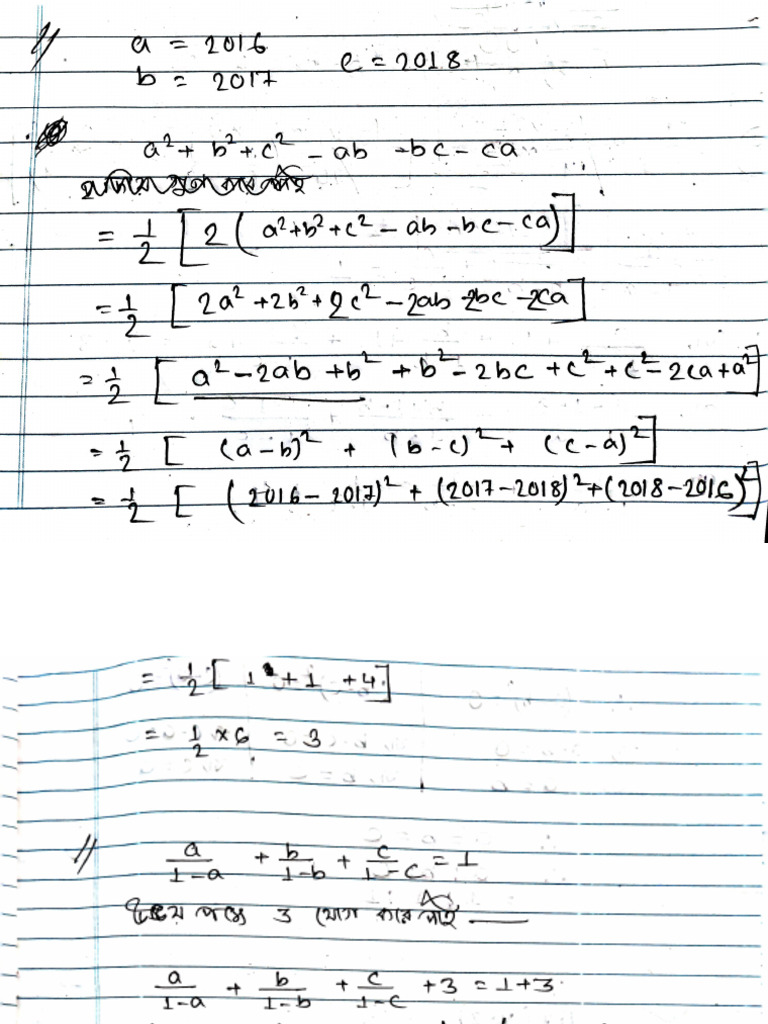 // a = 2016
b = 2017 c = 2018
a² + b² + c² - ab - bc - ca
= 1/2 [ 2 ( a² + b² + c² - ab - bc - ca) ]
= 1/2 [ 2a² + 2b² + 2c² - 2ab - 2bc - 2ca ]
= 1/2 [ a² - 2ab + b² + b² - 2bc + c² + c² - 2ca + a² ]
= 1/2 [ (a-b)² + (b-c)² + (c-a)² ]
= 1/2 [ (2016 - 2017)² + (2017 - 2018)² + (2018 - 2016)² ]
= 1/2 [ 1 + 1 + 4 ]
= 1/2 × 6 = 3
// a/1-a + b/1-b + c/1-c = 1
উভয় পক্ষে 3 যোগ করে পাই
a/1-a + b/1-b + c/1-c + 3 = 1+3